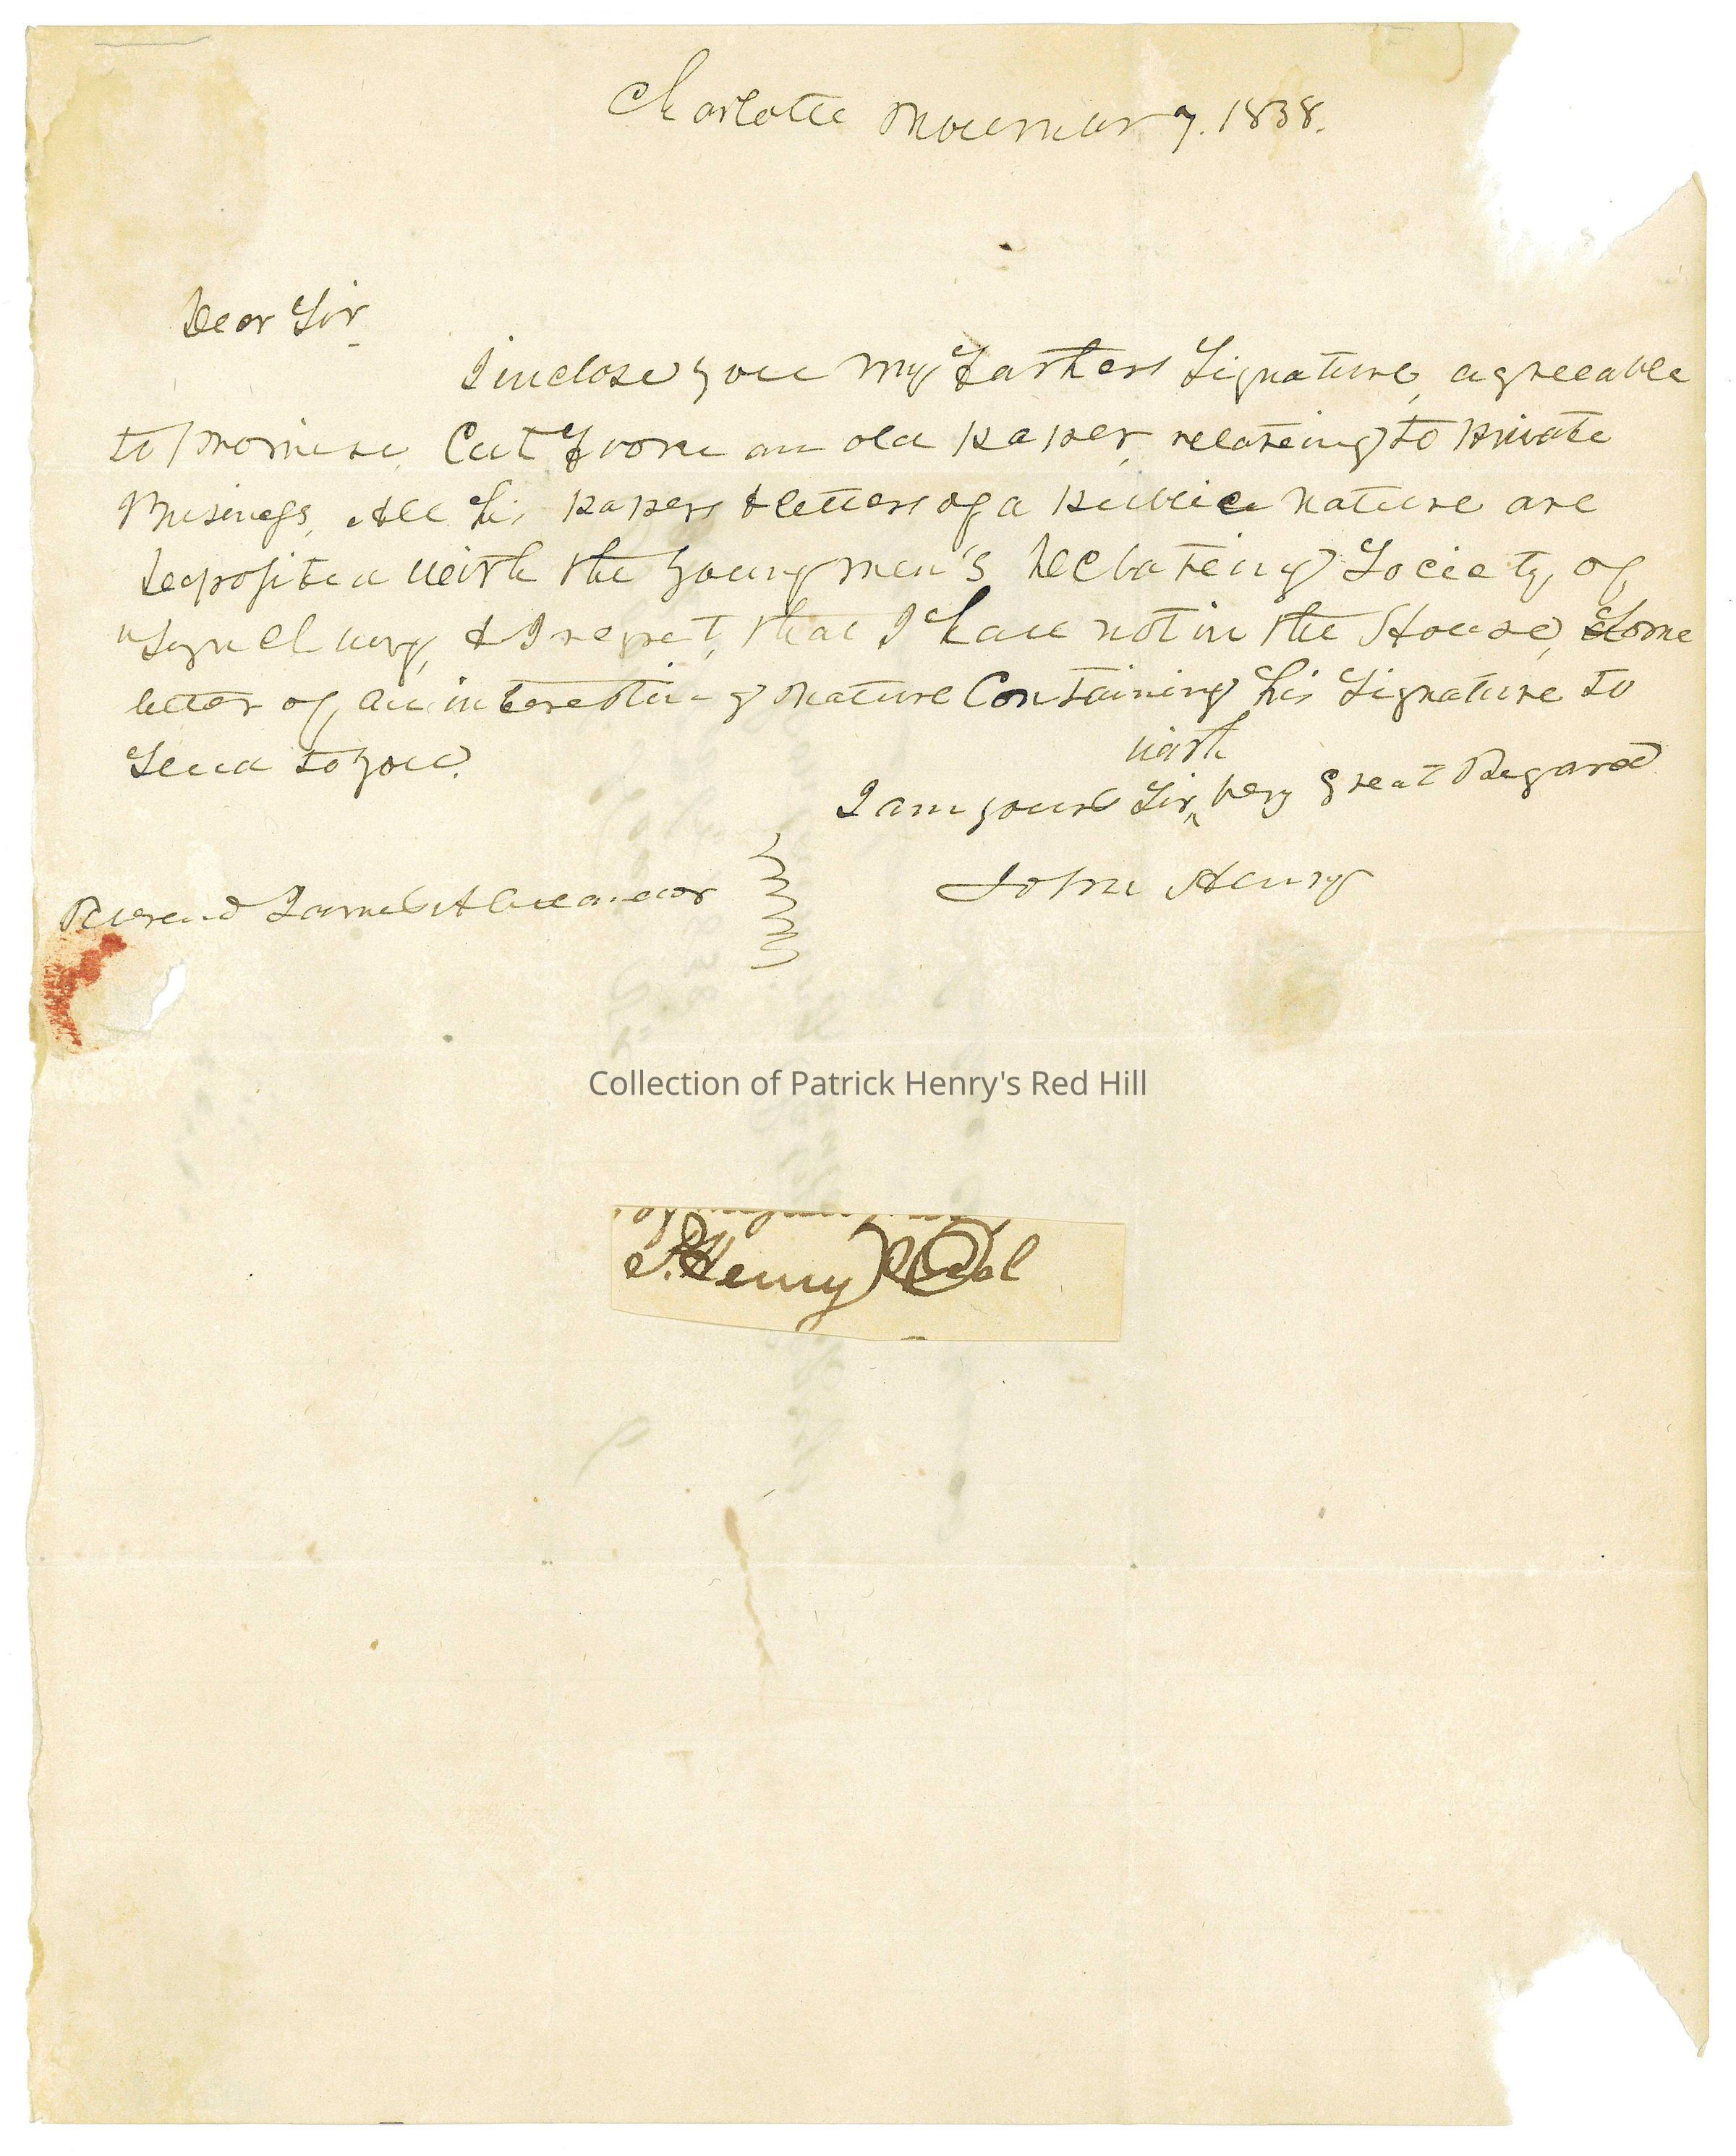 Charlotte November 7. 1838.
Dear Sir
I inclose you my Fathers Signature, agreeable
to promise, Cut from an old paper, relateing to private
Business, All his papers & letters of a publice nature are
deposited with the young men's Debateing Society of
Lynchburg, & I regret, that I have not in the House, Some
letter of an interesting nature Containing his Signature to
Send to you.
with
I am yours Sir, very great Regard
John Henry
Reverend James Alexander
Collection of Patrick Henry's Red Hill
P. Henry Seal